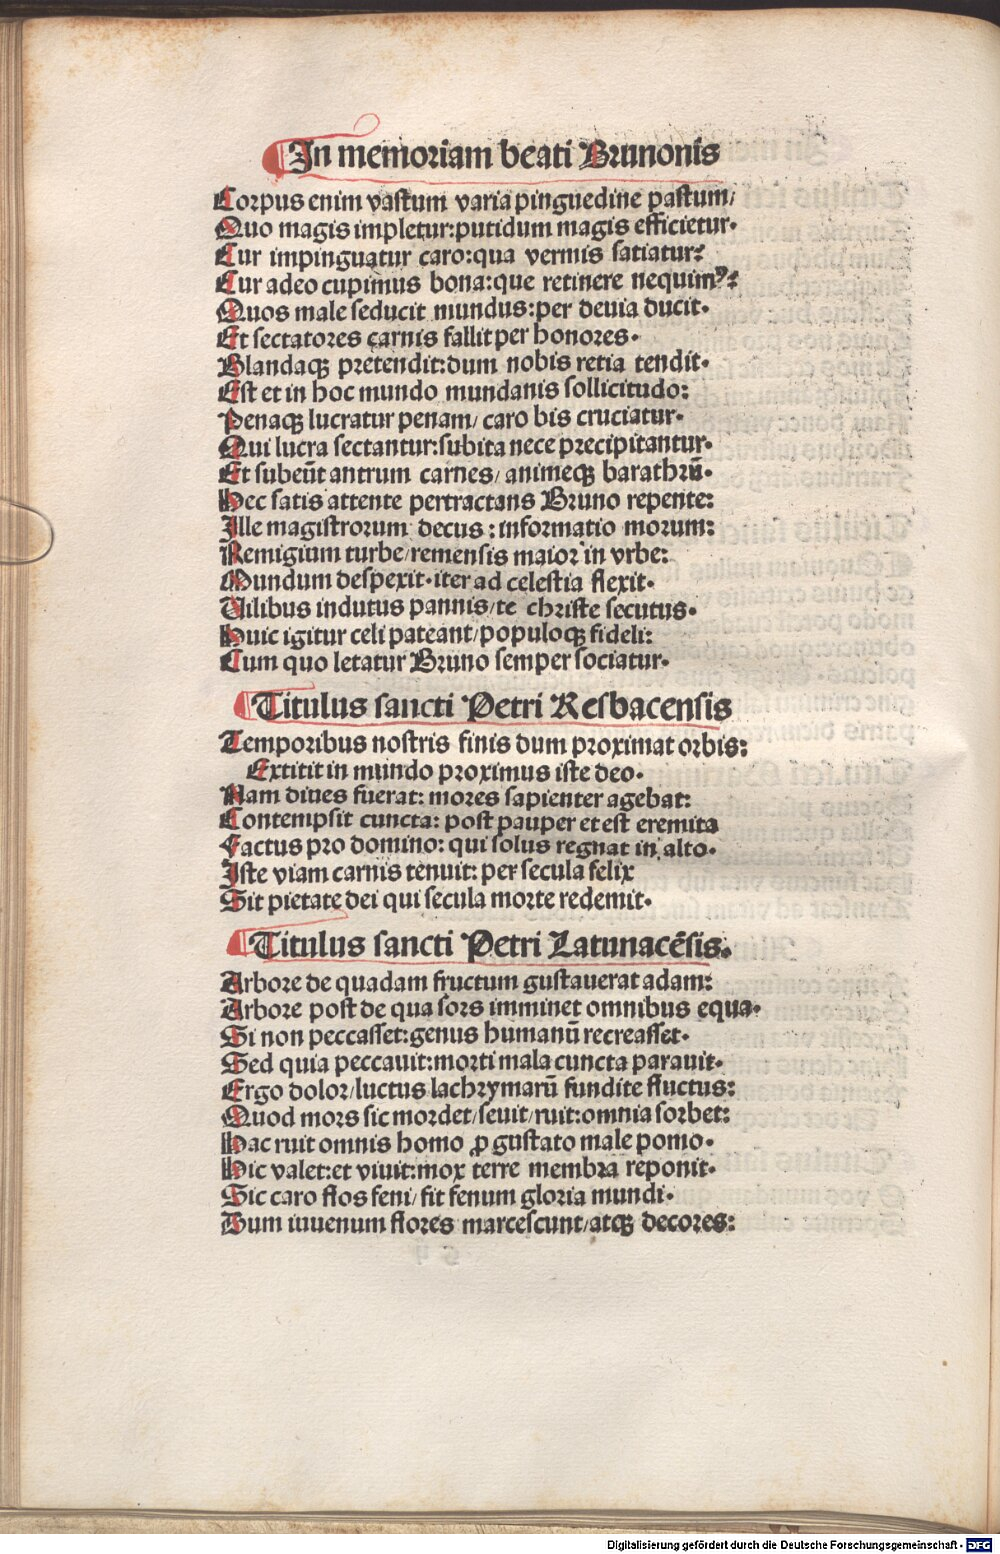 In memoriam beati Brunonis
Corpus enim vastum varia pinguedine pastum/
Quo magis impletur: putidum magis efficietur.
Cur impinguatur caro: qua vermis satiatur?
Cur adeo cupimus bona: que retinere nequimꝰ?
Quos male seducit mundus: per deuia ducit.
Et sectatores carnis fallit per honores.
Blandaqꝫ pretendit: dum nobis retia tendit.
Est et in hoc mundo mundanis sollicitudo:
Penaqꝫ lucratur penam/ caro bis cruciatur.
Qui lucra sectantur: subita nece precipitantur.
Et subeūt antrum carnes/ animeqꝫ barathrū.
Hec satis attente pertractans Bruno repente:
Ille magistrorum decus: informatio morum:
Remigium turbe/ remensis maior in vrbe:
Mundum despexit. iter ad celestia flexit.
Uilibus indutus pannis/ te christe secutus.
Huic igitur celi pateant/ populoqꝫ fideli:
Cum quo letatur Bruno semper sociatur.
Titulus sancti Petri Resbacensis
Temporibus nostris finis dum proximat orbis:
Extitit in mundo proximus iste deo.
Nam diues fuerat: mores sapienter agebat:
Contempsit cuncta: post pauper et est eremita
Factus pro domino: qui solus regnat in alto.
Iste viam carnis tenuit: per secula felix
Sit pietate dei qui secula morte redemit.
Titulus sancti Petri Latunacēsis.
Arbore de quadam fructum gustauerat adam:
Arbore post de qua sors imminet omnibus equa.
Si non peccasset: genus humanū recreasset.
Sed quia peccauit: morti mala cuncta parauit.
Ergo dolor/ luctus lachrymarū fundite fluctus:
Quod mors sic mordet/ seuit/ ruit: omnia sorbet:
Hac ruit omnis homo ꝓ gustato male pomo.
Hic valet: et viuit: mox terre membra reponit.
Sic caro flos feni/ fit fenum gloria mundi.
Dum iuuenum flores marcescunt/ atqꝫ decores:
Digitalisierung gefördert durch die Deutsche Forschungsgemeinschaft - DFG